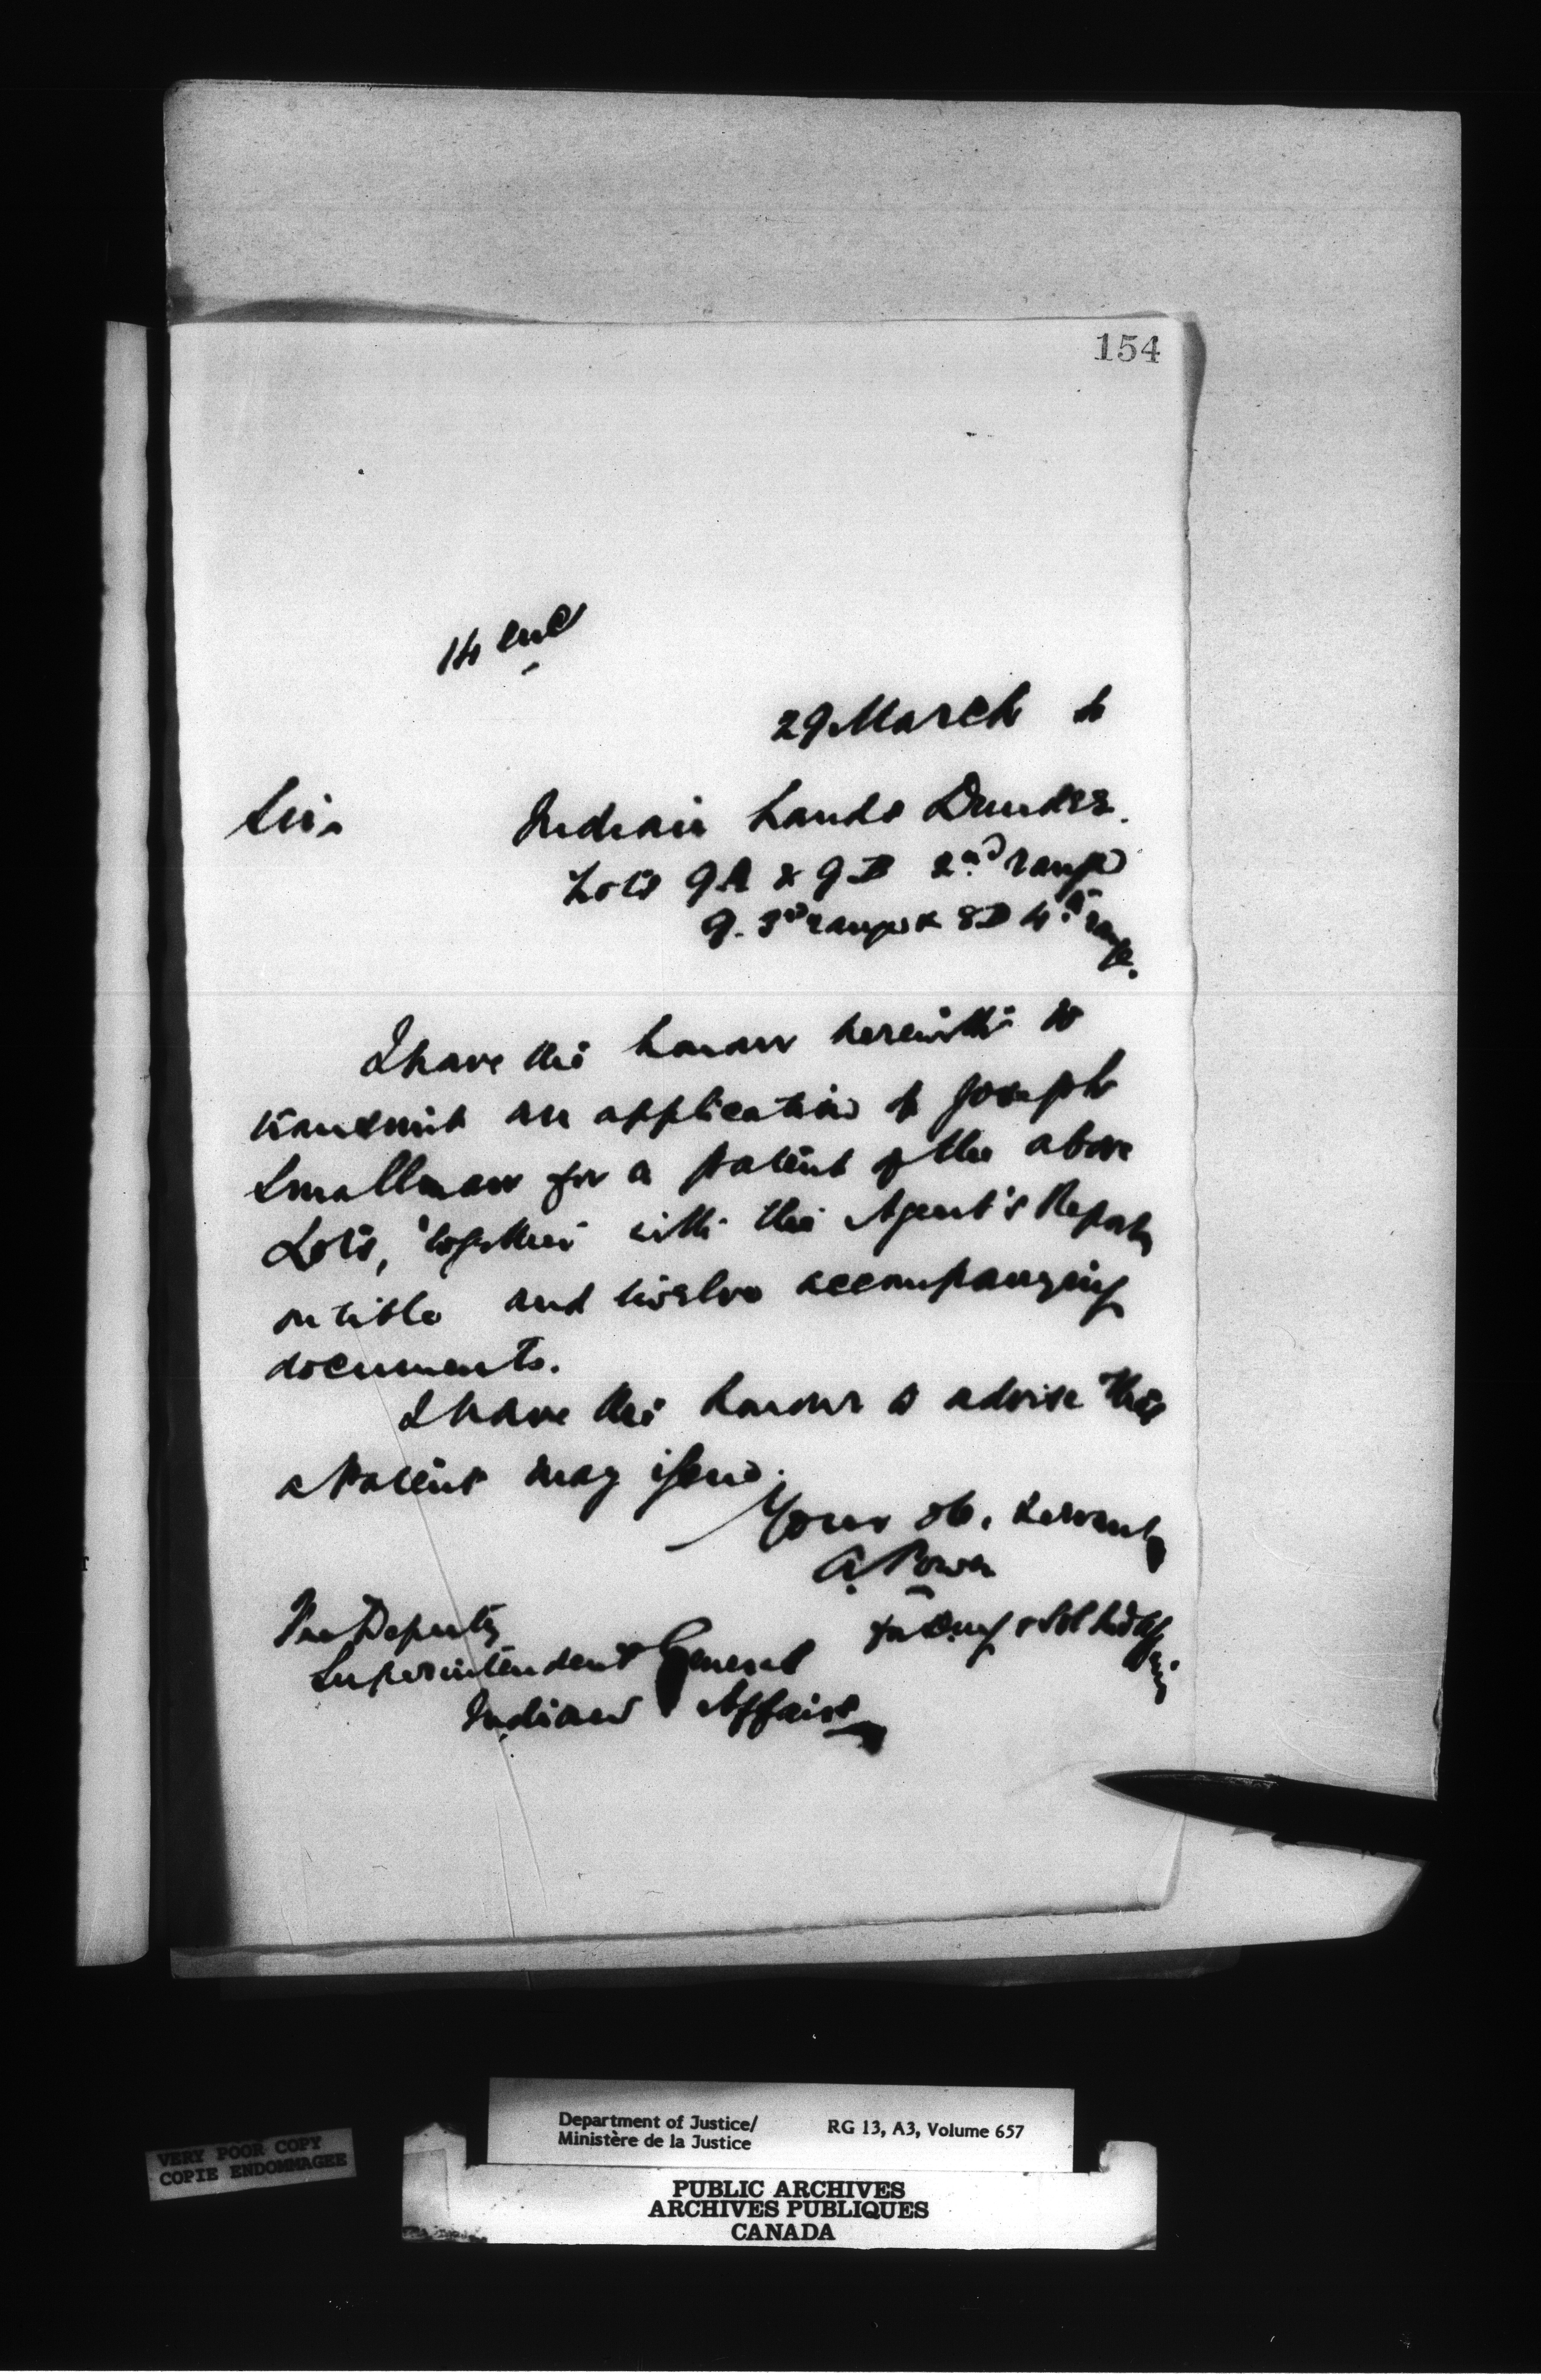 154
14 encl
29 March
Sir.
Indian Lands Dundee.
Lots 9A & 9B 2nd range
9. 3rd range & 8D 4th range.
I have the honour herewith to
transmit an application of Joseph
Smallman for a patent of the above
Lots, together with the Agent's Report
on title and twelve accompanying
documents.
I have the honour to advise that
a Patent may issue.
Your ob. servant
A. Power
The Deputy
Superintendent General
Indian Affairs
VERY POOR COPY
COPIE ENDOMMAGEE
Department of Justice/
Ministère de la Justice
RG 13, A3, Volume 657
PUBLIC ARCHIVES
ARCHIVES PUBLIQUES
CANADA